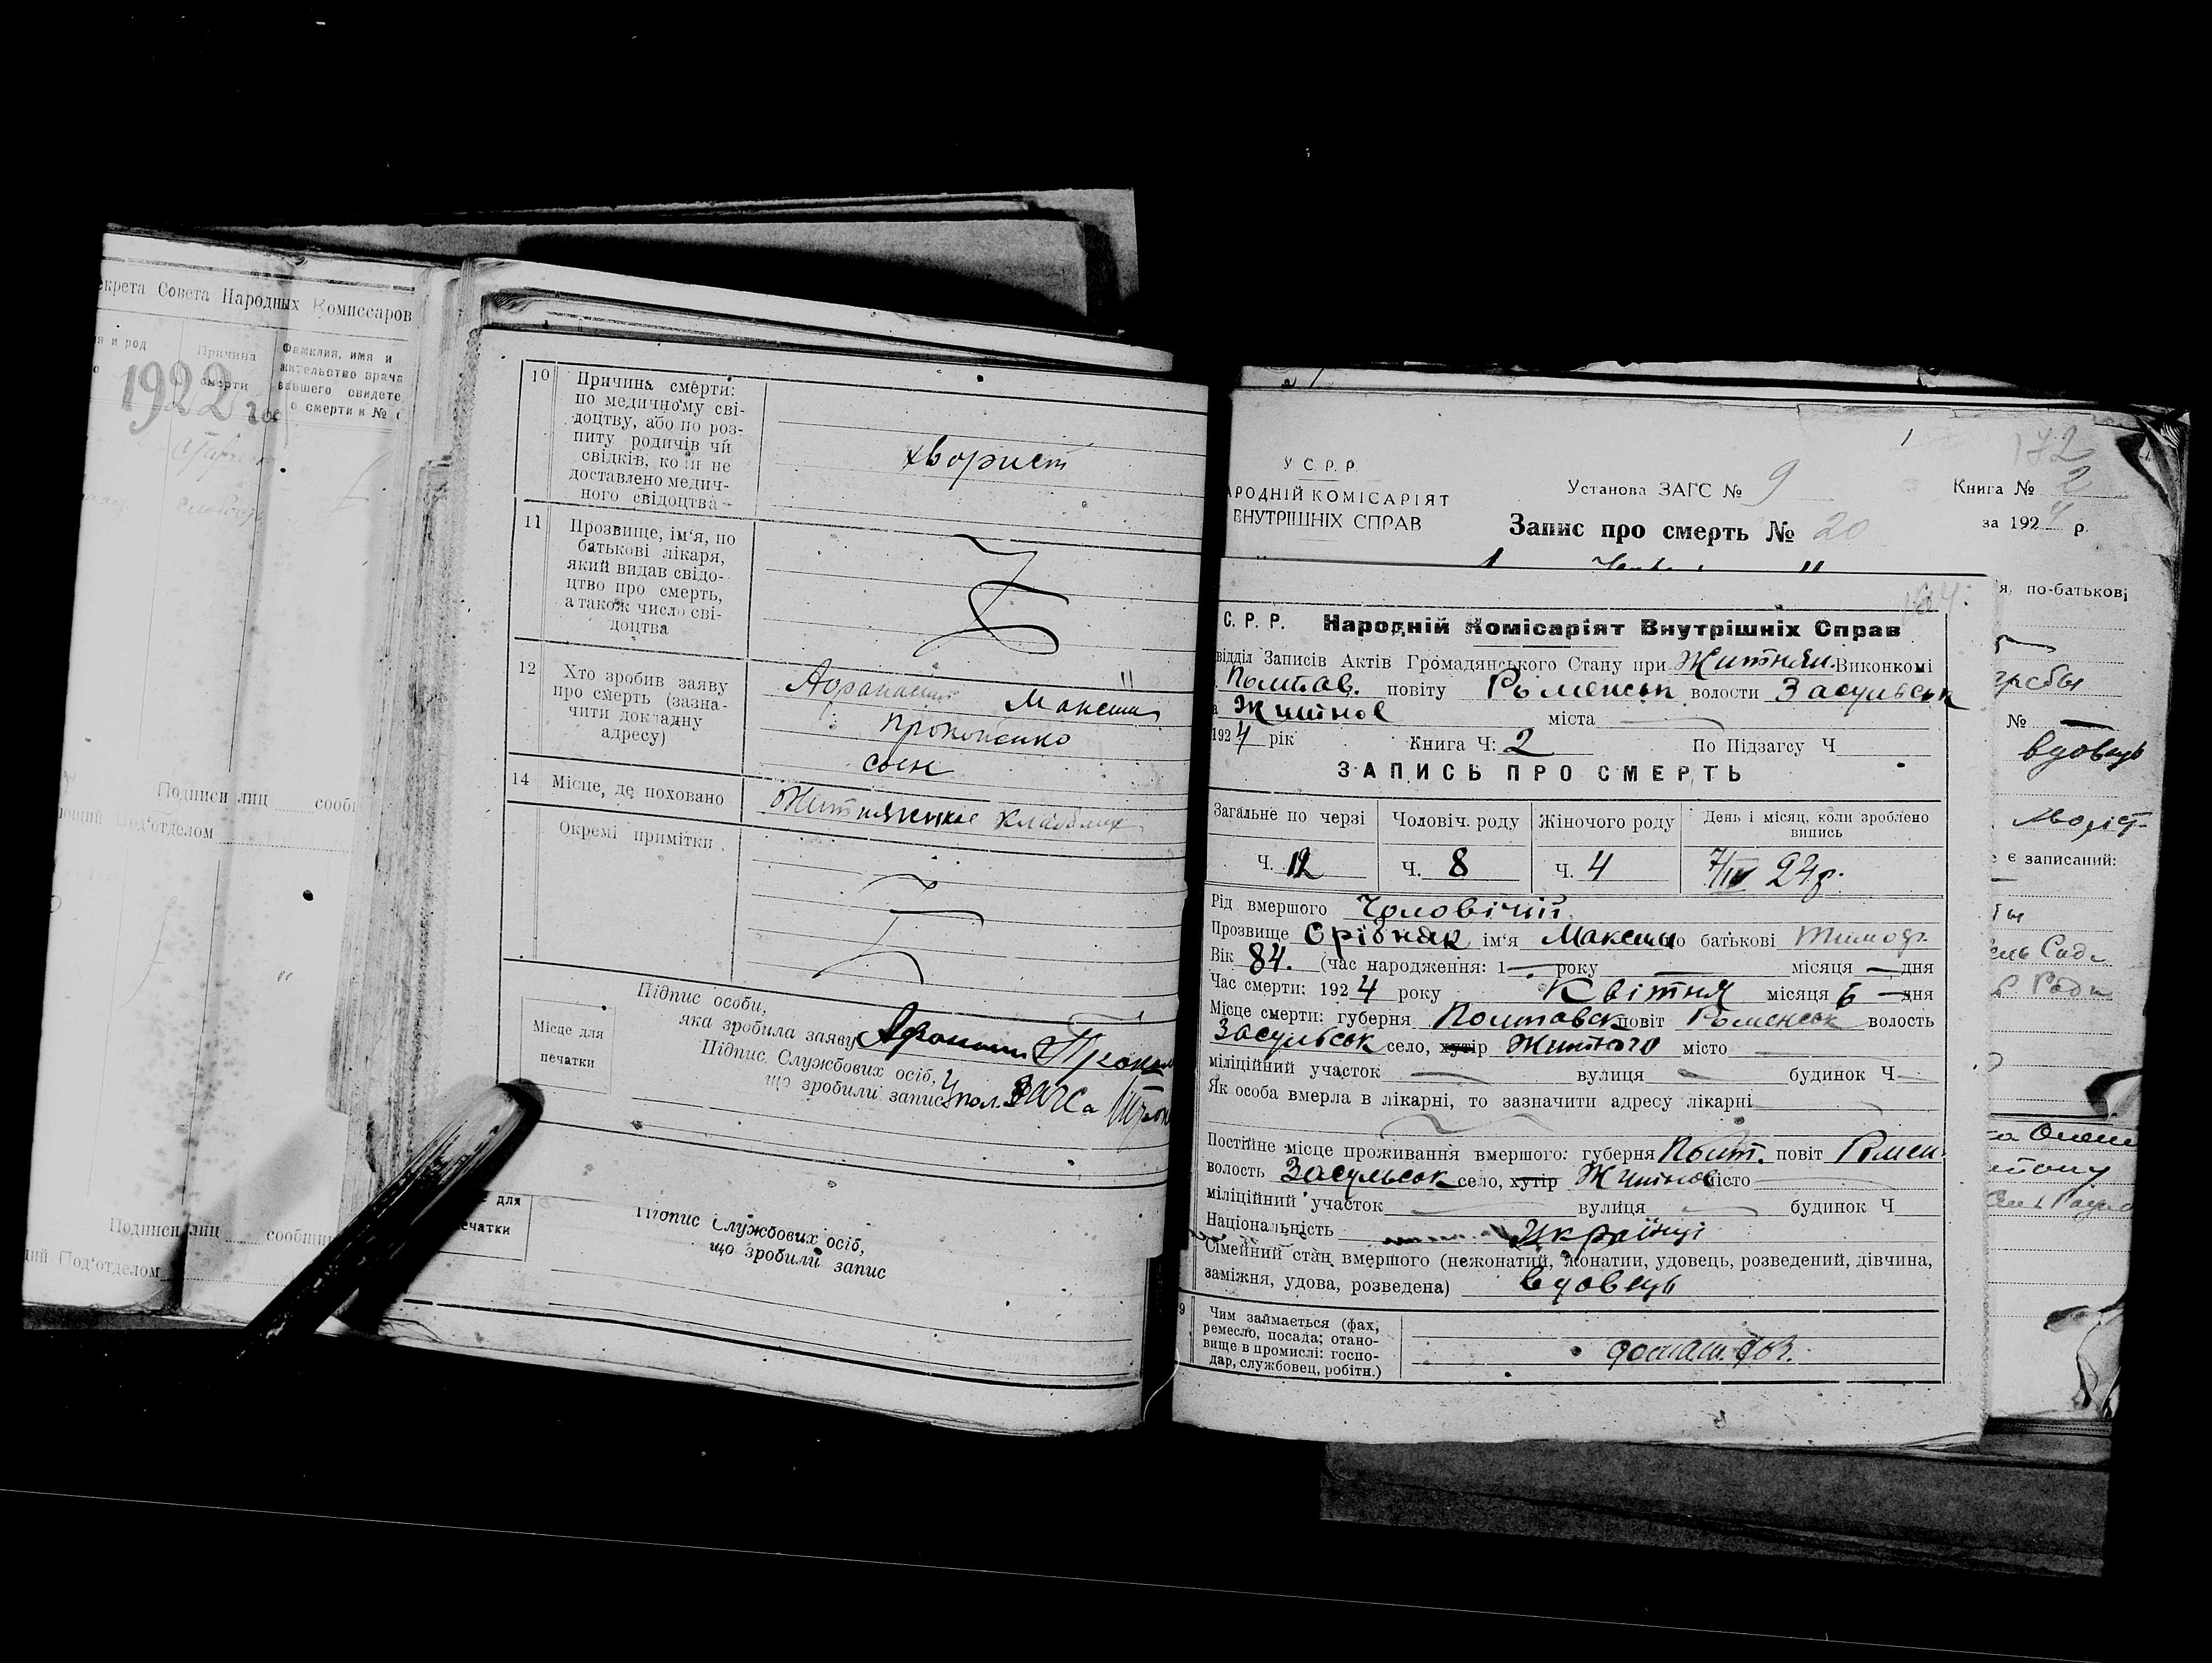 екрета Совета Народных Комиссаров
я и род
Причина
смерти
Фамилия, имя и
жительство врача
вавшего свидете
о смерти и № с
1922 год
Подписи лиц сообщ
ющий Под'отделом
Подписи лиц сообщив
ций Под'отделом
10 Причина смерти:
по медичному сві-
доцтву, або по роз-
питу родичів чи
свідків, коли не
доставлено медич-
ного свідоцтва
хворист
11 Прозвище, ім'я, по
батькові лікаря,
який видав свідо-
цтво про смерть,
а також число сві-
доцтва
12 Хто зробив заяву
про смерть (зазна-
чити докладну
адресу)
Афанасий Максим
Прокопенко
сын
14 Місце, де поховано
Житнянское кладбище
Окремі примітки
Підпис особи,
яка зробила заяву
Місце для
печатки
Підпис Службових осіб,
що зробили запис
Упол. ЗАГСа
для
ечатки
Підпис Службових осіб,
що зробили запис
У С. Р. Р.
АРОДНІЙ КОМІСАРІЯТ
ВНУТРІШНІХ СПРАВ
Установа ЗАГС № 9
Запис про смерть № 20
172
Книга № 2
за 1924 р.
я, по-батькові
№
вдовець
є записаний:
С. Р. Р. Народній Комісаріят Внутрішніх Справ
відділ Записів Актів Громадянського Стану при Житнян. Виконкомі
Полтав. повіту Роменськ волости Засульськ
а Житное міста
1924 рік Книга Ч: 2 По Підзагсу Ч
ЗАПИСЬ ПРО СМЕРТЬ
Загальне по черзі Чоловіч. роду Жіночого роду День і місяц, коли зроблено
випись
Ч. 12 Ч. 8 Ч. 4 7/IV 24 р.
Рід вмершого Чоловічий
Прозвище Срібняк ім'я Максим по батькові Тимоф.
Вік 84. (час народження: 1 року місяця дня
Час смерти: 1924 року Квітня місяця 6 дня
Місце смерти: губерня Полтавськ повіт Роменськ волость
Засульськ село, хутір Житного місто
міліційний участок вулиця будинок Ч
Як особа вмерла в лікарні, то зазначити адресу лікарні
Постійне місце проживання вмершого: губерня Полт. повіт Ромен.
волость Засульськ село, хутір Житное місто
міліційний участок вулиця будинок Ч
Національність Українці
Сімейний стан вмершого (нежонатий, жонатий, удовець, розведений, дівчина,
заміжня, удова, розведена) вдовець
9 Чим займається (фах,
ремесло, посада; стано-
вище в промислі: госпо-
дар, службовец, робітн.)